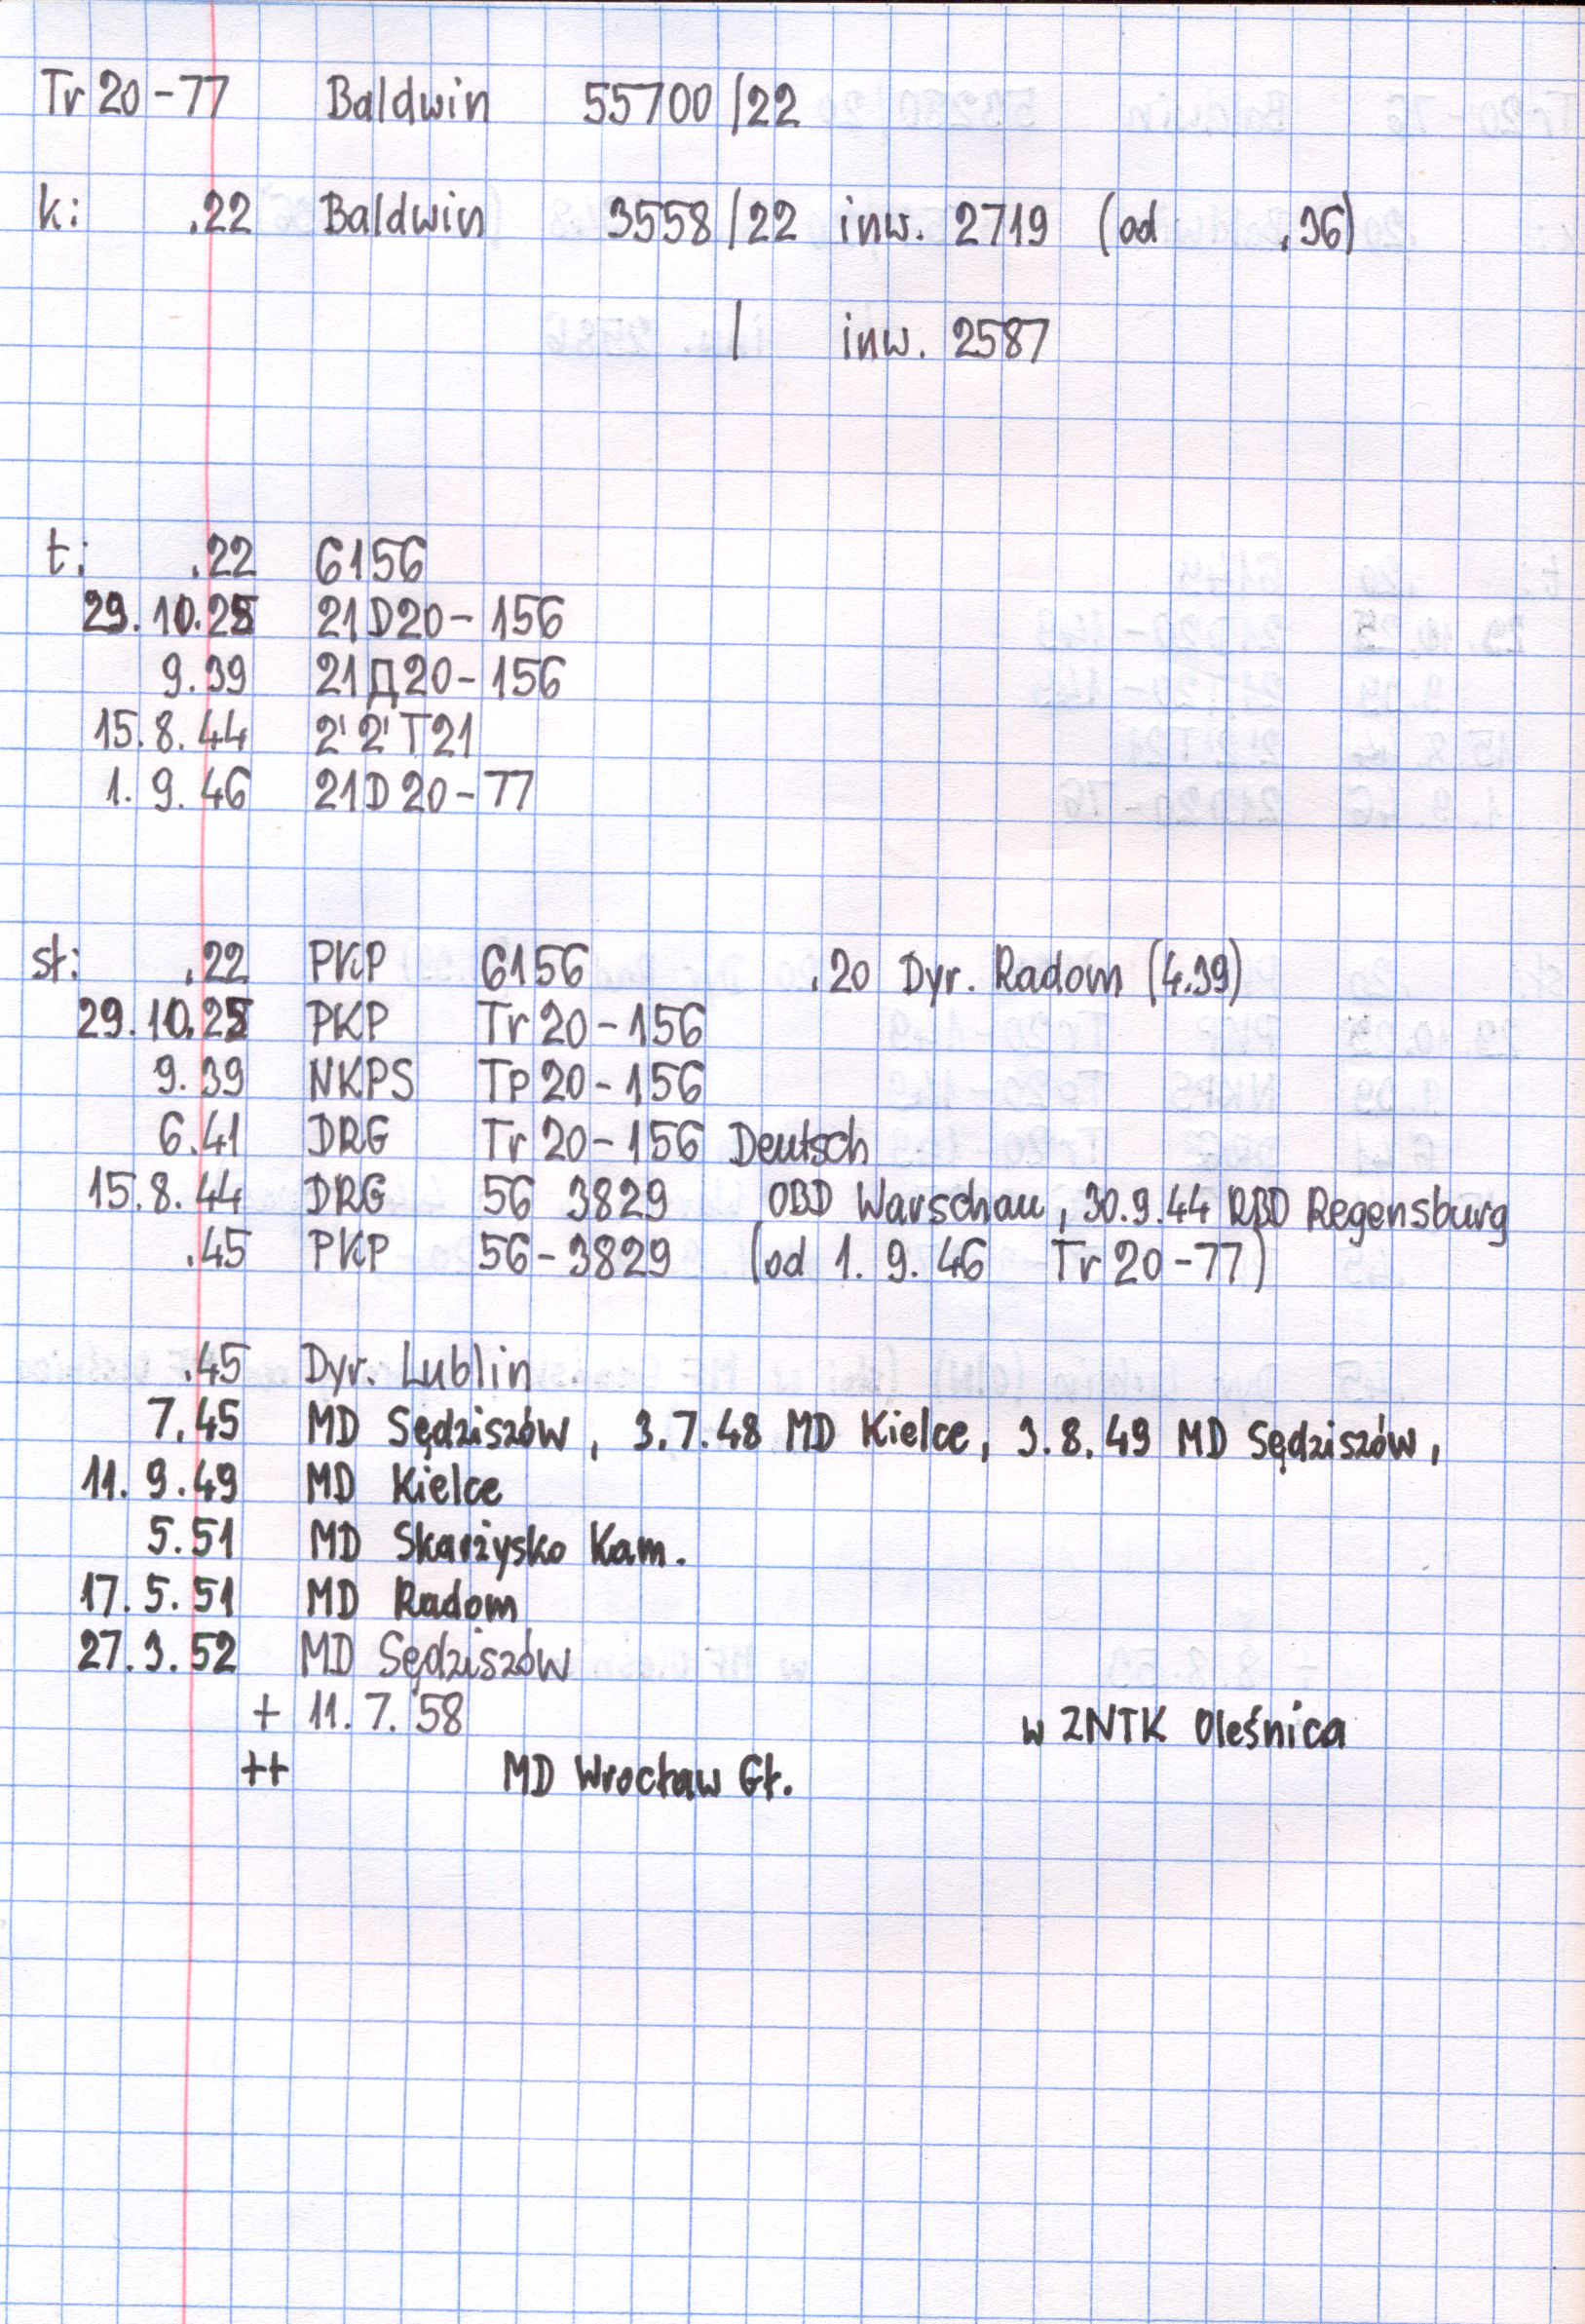 Tr 20-77 Baldwin 55700/22
k: .22 Baldwin 3558/22 inw. 2719 (od .36)
/ inw. 2587
t: .22 6156
29.10.25 21D20-156
9.39 21Д20-156
15.8.44 2'2'T21
1.9.46 21D20-77
sł: .22 PKP 6156 .20 Dyr. Radom (4.39)
29.10.25 PKP Tr 20-156
9.39 NKPS Tp 20-156
6.41 DRG Tr 20-156 Deutsch
15.8.44 DRG 56 3829 OBD Warschau, 30.9.44 RBD Regensburg
.45 PKP 56-3829 (od 1.9.46 Tr 20-77)
.45 Dyr. Lublin
7.45 MD Sędziszów, 3.7.48 MD Kielce, 3.8.49 MD Sędziszów,
11.9.49 MD Kielce
5.51 MD Skarżysko Kam.
17.5.51 MD Radom
27.3.52 MD Sędziszów
+ 11.7.58 w ZNTK Oleśnica
++ MD Wrocław Gł.